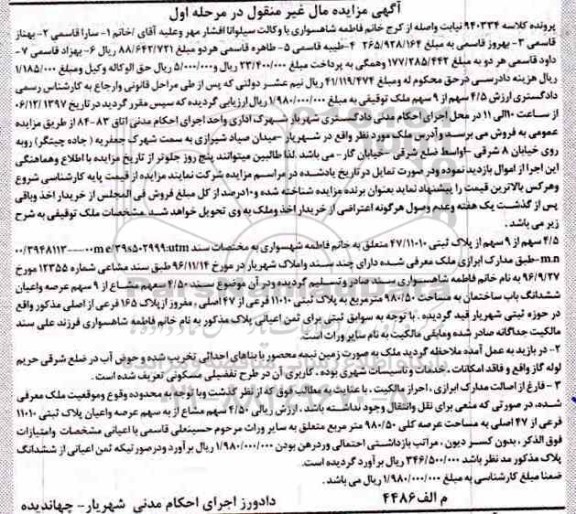 آگهی مزایده مال غیر منقول در مرحله اول
پرونده کلاسه ۹۴۰۳۳۴ نیابت واصله از کرج خانم فاطمه شاهسواری با وکالت سیلوانا افشار مهر وعلیه آقای /خانم ۱- سارا قاسمی ۲- بهناز
قاسمی ۳- بهروز قاسمی به مبلغ ۲۶۵/۹۲۸/۱۶۴ ۴-طیبه قاسمی ۵- طاهره قاسمی هر دو مبلغ ۸۸/۶۴۲/۷۲۱ ریال ۶- بهزاد قاسمی ۷-
داود قاسمی هر دو به مبلغ ۱۷۷/۲۸۵/۴۴۲ وهمگی به پرداخت مبلغ ۲۳/۴۰۰/۰۰۰ ریال و۵/۰۰۰/۰۰۰ ریال حق الوکاله وکیل ومبلغ ۱/۱۸۵/۰۰۰
ریال هزینه دادرسی در حق محکوم له ومبلغ ۴۱/۱۱۹/۴۷۴ ریال نیم عشر دولتی که پس از طی مراحل قانونی وارجاع به کارشناس رسمی
دادگستری ارزش ۴/۵ سهم از ۹ سهم ملک توقیفی به مبلغ ۱/۹۸۰/۰۰۰/۰۰۰ ریال ارزیابی گردیده که سپس مقرر گردید در تاریخ ۰۶/۱۲/ ۱۳۹۷
از ساعت ۱۰الی ۱۱ در محل اجرای احکام مدنی دادگستری شهریار شهرک اداری واحد اجرای احکام مدنی اتاق ۸۳-۸۴ از طریق مزایده
عمومی به فروش می برسد وآدرس ملک مورد نظر واقع در شهریار -میدان صیاد شیرازی به سمت شهرک جعفریه ( جاده چیتگر) روبه
روی خیابان ۸ شرقی -اواسط ضلع شرقی -خیابان گاز - می باشد .لذا طالبین میتوانند پنج روز جلوتر از تاریخ مزایده با اطلاع وهماهنگی
این اجرا از اموال بازدید نموده ودر صورت تمایل در تاریخ یادشده در مراسم مزایده شرکت نمایند مزایده از قیمت پایه کارشناسی شروع
وهرکس بالاترین قیمت را پیشنهاد نماید بعنوان برنده مزایده شناخته شده و۱۰درصد از کل مبلغ فروش فی المجلس از خریدار اخذ وباقی
پس از گذشت یک هفته وعدم وصول هرگونه اعتراضی از خریدار اخذ وملک به وی تحویل خواهد شد مشخصات ملک توقیفی به شرح
زیر می باشد .
۴/۵ سهم از ۹ سهم از پلاک ثبتی ۴۷/۱۱۰۱۰ متعلق به خانم فاطمه شهسواری به مختصات سند utm:
m.n-طبق مدارک ابرازی ملک معرفی شده دارای چند سند واملاک شهریار در مورخ ۹۶/۱۱/۱۴ طبق سند مشاعی شماره ۱۲۳۵۵ مورخ
۹۶/۹/۲۷ به نام خانم فاطمه شاهسواری سند صادر وتسلیم گردیده ودر آن موضوع سند ۴/۵۰ سهم مشاع از ۹ سهم عرصه واعیان
ششدانگ باب ساختمان به مساحت ۹۸۰/۵۰ مترمربع به پلاک ثبتی ۱۱۰۱۰ فرعی از ۴۷ اصلی، مفروز از پلاک ۱۶۵ فرعی از اصلی مذکور واقع
در حوزه ثبتی شهریار قید گردیده . با توجه به سوابق ثبتی برای ثمن اعیانی پلاک مذکور به نام خانم فاطمه شاهسواری فرزند علی سند
مالکیت جداگانه صادر شده ومابقی مالکیت به نام سایر وراث است.
۲- در بازدید به عمل آمده ملاحظه گردید ملک به صورت زمین نیمه محصور با بناهای احداثی تخریب شده و حوض آب در ضلع شرقی حریم
لوله گاز واقع و فاقد امکانات .خدمات و تاسیسات شهری بوده . کاربری آن در طرح تفضیلی مسکونی تعریف شده است.
۳- فارغ از اصالت مدارک ابرازی ، احراز مالکیت ، با عنایت به مطالب فوق که از نظر گذشت وبا توجه به محدوده وقوع وموقعیت ملک معرفی
شده، در صورتی که منعی برای نقل وانتقال وجود نداشته باشد . ارزش ریالی ۴/۵۰ سهم مشاع از به سهم عرصه واعیان پلاک ثبتی ۱۱۰۱۰
فرعی از ۴۷ اصلی به مساحت عرصه کلی ۹۸۰/۵۰ متر مربع متعلق به سایر وراث مرحوم حسینعلی قاسمی با اعیانی مشخصات وامتیازات
فوق الذکر ، بدون کسر دیون ، مراتب بازداشتی احتمالی ودرهن بودن ۱/۹۸۰/۰۰۰/۰۰۰ ریال برآورد ودرصورتیکه ثمن اعیانی از ششدانگ
پلاک مذکور مد نظر باشد ۳۴۶/۵۰۰/۰۰۰ ریال برآورد گردیده است.
ضمنا مبلغ کارشناسی به مبلغ ۱/۹۸۰/۰۰۰/۰۰۰ ریال می باشد .
م الف ۴۴۸۶ دادورز اجرای احکام مدنی شهریار- جهاندیده